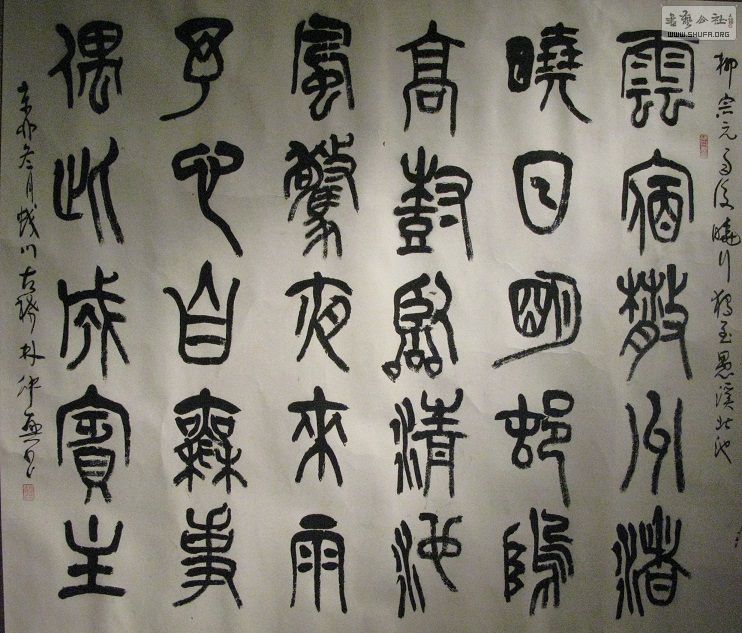 書藝公社
WWW.SHUFA.ORG
柳宗元雨後曉行獨至愚溪北池
雲宿散渚
曉日明邨隖
高尌臨清池
風驚夜來雨
予心自無事
偶此成賓主
辛卯月川古林仲